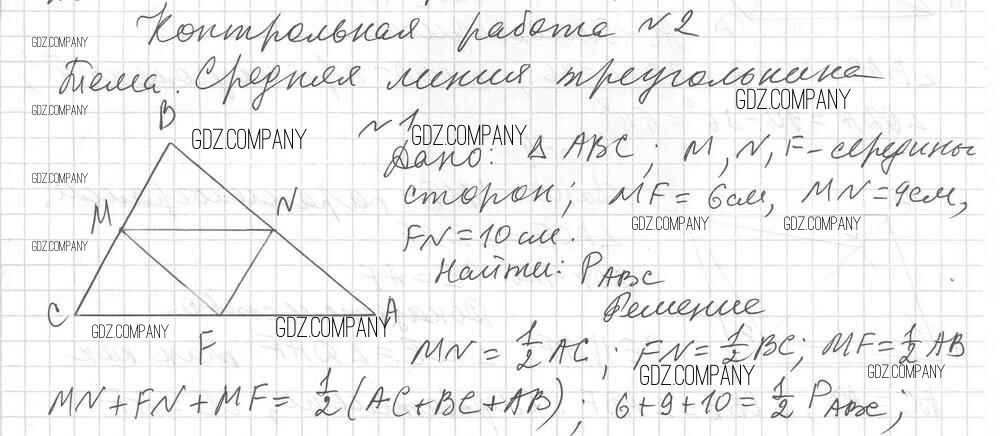 Контрольная работа №2
Тема. Средняя линия треугольника
№1
Дано: Δ ABC; M, N, F - середины
сторон; MF = 6 см, MN = 9 см,
FN = 10 см.
Найти: P ABC
Решение
MN = 1/2 AC; FN = 1/2 BC; MF = 1/2 AB
MN + FN + MF = 1/2 (AC + BC + AB); 6 + 9 + 10 = 1/2 P ABC;
B
M
N
C
F
A
GDZ.COMPANY
GDZ.COMPANY
GDZ.COMPANY
GDZ.COMPANY
GDZ.COMPANY
GDZ.COMPANY
GDZ.COMPANY
GDZ.COMPANY
GDZ.COMPANY
GDZ.COMPANY
GDZ.COMPANY
GDZ.COMPANY
GDZ.COMPANY